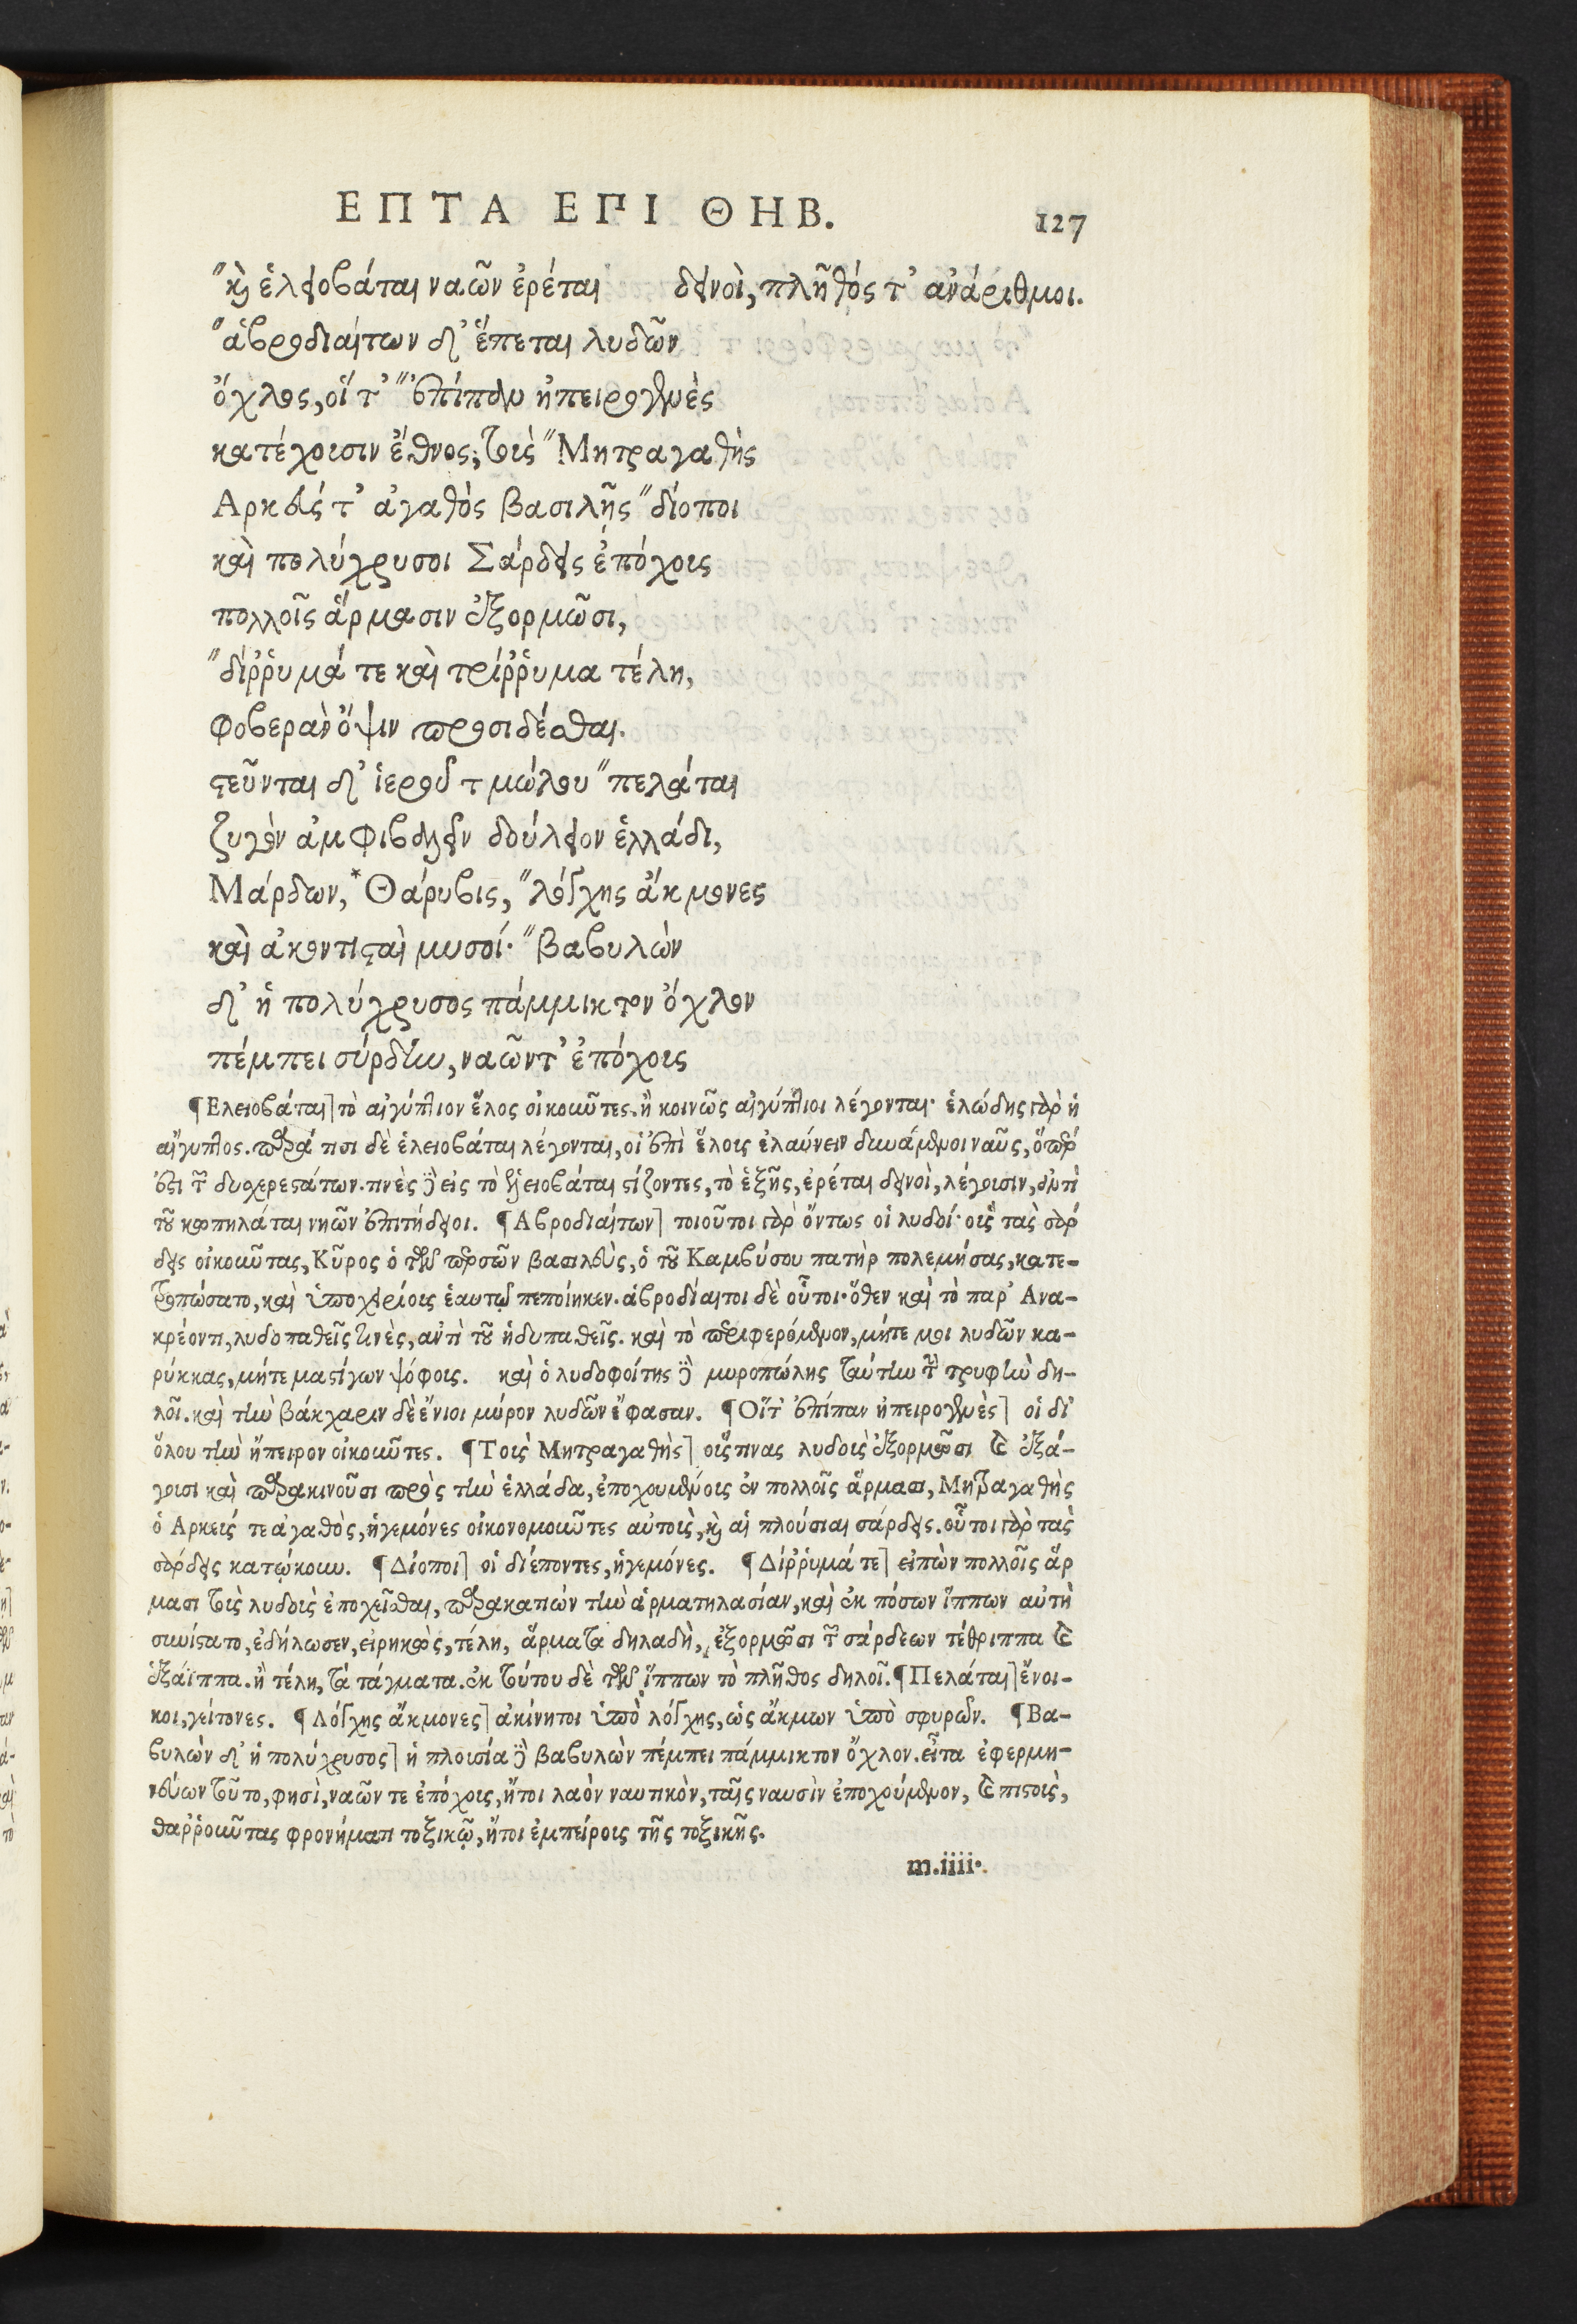 ΕΠΤΑ ΕΠΙ ΘΗΒ. 127
"καὶ ἑλειοβάται ναῶν ἐρέται δεινοὶ, πλῆθός τ' ἀνάριθμοι.
"ἁβροδιαίτων δ' ἕπεται λυδῶν
ὄχλος, οἵ τ' "ἐπίπαν ἠπειρογενὲς
κατέχουσιν ἔθνος; τοὺς "Μητραγαθὴς
Αρκεύς τ' ἀγαθὸς βασιλῆς "δίοποι
καὶ πολύχρυσοι Σάρδεις ἐπόχους
πολλοῖς ἅρμασιν ἐξορμῶσι,
"δίῤῥυμά τε καὶ τρίῤῥυμα τέλη,
φοβερὰν ὄψιν προσιδέσθαι.
στεῦνται δ' ἱεροῦ τμώλου "πελάται
ζυγὸν ἀμφιβαλεῖν δούλειον ἑλλάδι,
Μάρδων, *Θάρυβις, "λόγχης ἄκμονες
καὶ ἀκοντισταὶ μυσοί· "βαβυλὼν
δ' ἡ πολύχρυσος πάμμικτον ὄχλον
πέμπει σύρδην, ναῶν τ' ἐπόχους
¶Ελειοβάται] τὸ αἰγύπτιον ἕλος οἰκοῦντες. ἢ κοινῶς αἰγύπτιοι λέγονται· ἑλώδης γὰρ ἡ
αἴγυπτος. παρά τισι δὲ ἑλειοβάται λέγονται, οἱ ἐπὶ ἕλους ἐλαύνειν δυνάμενοι ναῦς, ὅπερ
ἐστὶ τῶν δυσχερεστάτων. τινὲς δὲ εἰς τὸ ἑλειοβάται στίζοντες, τὸ ἑξῆς, ἐρέται δεινοὶ, λέγουσιν, ἀντὶ
τοῦ κωπηλάται νηῶν ἐπιτήδειοι. ¶Αβροδιαίτων] τοιοῦτοι γὰρ ὄντως οἱ λυδοί· οὓς τὰς σάρ
δεις οἰκοῦντας, Κῦρος ὁ τῶν περσῶν βασιλεὺς, ὁ τοῦ Καμβύσου πατὴρ πολεμήσας, κατε-
τροπώσατο, καὶ ὑποχειρίους ἑαυτῷ πεποίηκεν. ἁβροδίαιτοι δὲ οὗτοι· ὅθεν καὶ τὸ παρ' Ανα-
κρέοντι, λυδοπαθεῖς τινὲς, ἀντὶ τοῦ ἡδυπαθεῖς. καὶ τὸ περιφερόμενον, μήτε μοι λυδῶν κα-
ρύκκας, μήτε μαστίγων ψόφους. καὶ ὁ λυδοφοίτης δὲ μυροπώλης ταύτην τὴν τρυφὴν δη-
λοῖ. καὶ τὴν βάκχαριν δὲ ἔνιοι μύρον λυδῶν ἔφασαν. ¶Οἵτ' ἐπίπαν ἠπειρογενὲς] οἱ δι'
ὅλου τὴν ἤπειρον οἰκοῦντες. ¶Τοὺς Μητραγαθὴς] οὕςτινας λυδοὺς ἐξορμῶσι καὶ ἐξά-
γουσι καὶ παρακινοῦσι πρὸς τὴν ἑλλάδα, ἐποχουμένους ἐν πολλοῖς ἅρμασι, Μητραγαθὴς
ὁ Αρκεύς τε ἀγαθὸς, ἡγεμόνες οἰκονομοῦντες αὐτοὺς, καὶ αἱ πλούσιαι σάρδεις. οὗτοι γὰρ τὰς
σάρδεις κατῴκουν. ¶Δίοποι] οἱ διέποντες, ἡγεμόνες. ¶Δίῤῥυμά τε] εἰπὼν πολλοῖς ἅρ
μασι τοὺς λυδοὺς ἐποχεῖσθαι, παρακατιὼν τὴν ἁρματηλασίαν, καὶ ἐκ πόσων ἵππων αὐτὴ
συνίστατο, ἐδήλωσεν, εἰρηκὼς, τέλη, ἅρματα δηλαδὴ, ἐξορμῶσι τῶν σάρδεων τέθριππα καὶ
ἑξάϊππα. ἢ τέλη, τὰ τάγματα. ἐκ τούτου δὲ τῶν ἵππων τὸ πλῆθος δηλοῖ. ¶Πελάται] ἔνοι-
κοι, γείτονες. ¶Λόγχης ἄκμονες] ἀκίνητοι ὑπὸ λόγχης, ὡς ἄκμων ὑπὸ σφυρῶν. ¶Βα-
βυλὼν δ' ἡ πολύχρυσος] ἡ πλουσία δὲ βαβυλὼν πέμπει πάμμικτον ὄχλον. εἶτα ἐφερμη-
νεύων τοῦτο, φησὶ, ναῶν τε ἐπόχους, ἤτοι λαὸν ναυτικὸν, ταῖς ναυσὶν ἐποχούμενον, καὶ πιστοὺς,
θαῤῥοῦντας φρονήματι τοξικῷ, ἤτοι ἐμπείρους τῆς τοξικῆς.
m.iiii.